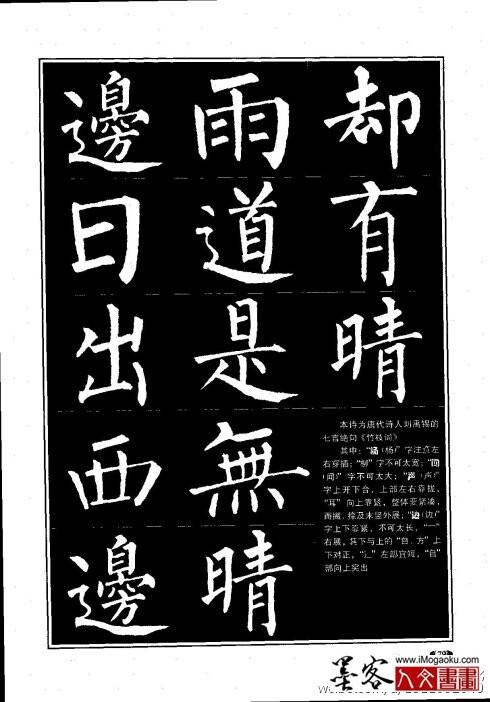 邊日出西邊
雨道是無晴
却有晴
本诗为唐代诗人刘禹锡的
七言绝句《竹枝词》
其中:“楊(杨)”字注点左
右穿插;“ ”字不可太宽;“聞
(闻)”字不可太大;“聲(声)”
字上开下合,上部左右靠拢,
“耳”向上靠紧,整体要紧凑,
而撇、捺及末竖外展;“邊(边)”
字上下靠紧,不可太长,“一”
右展,其下与上的“自、方”上
下对正,“辶”左部宜短,“自”
部向上突出
79
墨客
www.iMogaoku.com
人文書畫